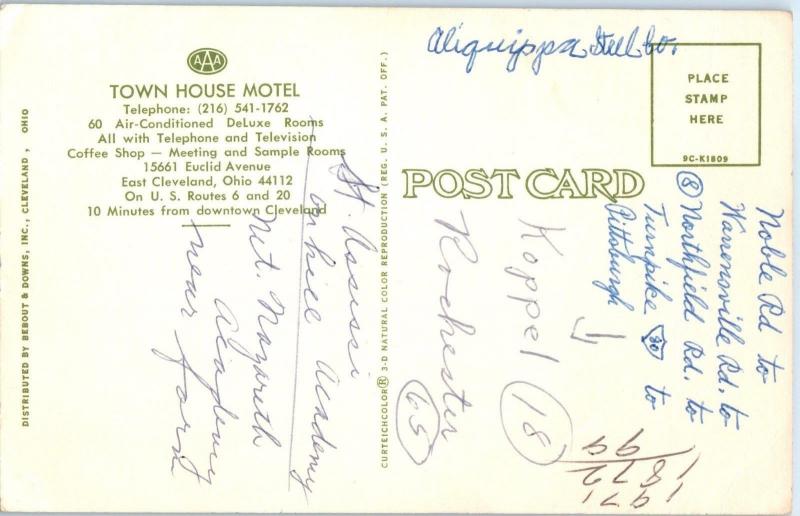 AAA
TOWN HOUSE MOTEL
Telephone: (216) 541-1762
60 Air-Conditioned DeLuxe Rooms
All with Telephone and Television
Coffee Shop — Meeting and Sample Rooms
15661 Euclid Avenue
East Cleveland, Ohio 44112
On U. S. Routes 6 and 20
10 Minutes from downtown Cleveland
DISTRIBUTED BY BEBOUT & DOWNS, INC., CLEVELAND, OHIO
CURTEICHCOLOR® 3-D NATURAL COLOR REPRODUCTION (REG. U. S. A. PAT. OFF.)
POST CARD
PLACE
STAMP
HERE
9C-K1809
Aliquippa Steel Co.
Noble Rd to
Warrensville Rd. to
8 Northfield Rd. to
Turnpike 80 to
Pittsburgh
Koppel 18
Rochester
65
St. Assisi
Academy
Mt. Nazareth
Academy
near farm
1971
1872
99